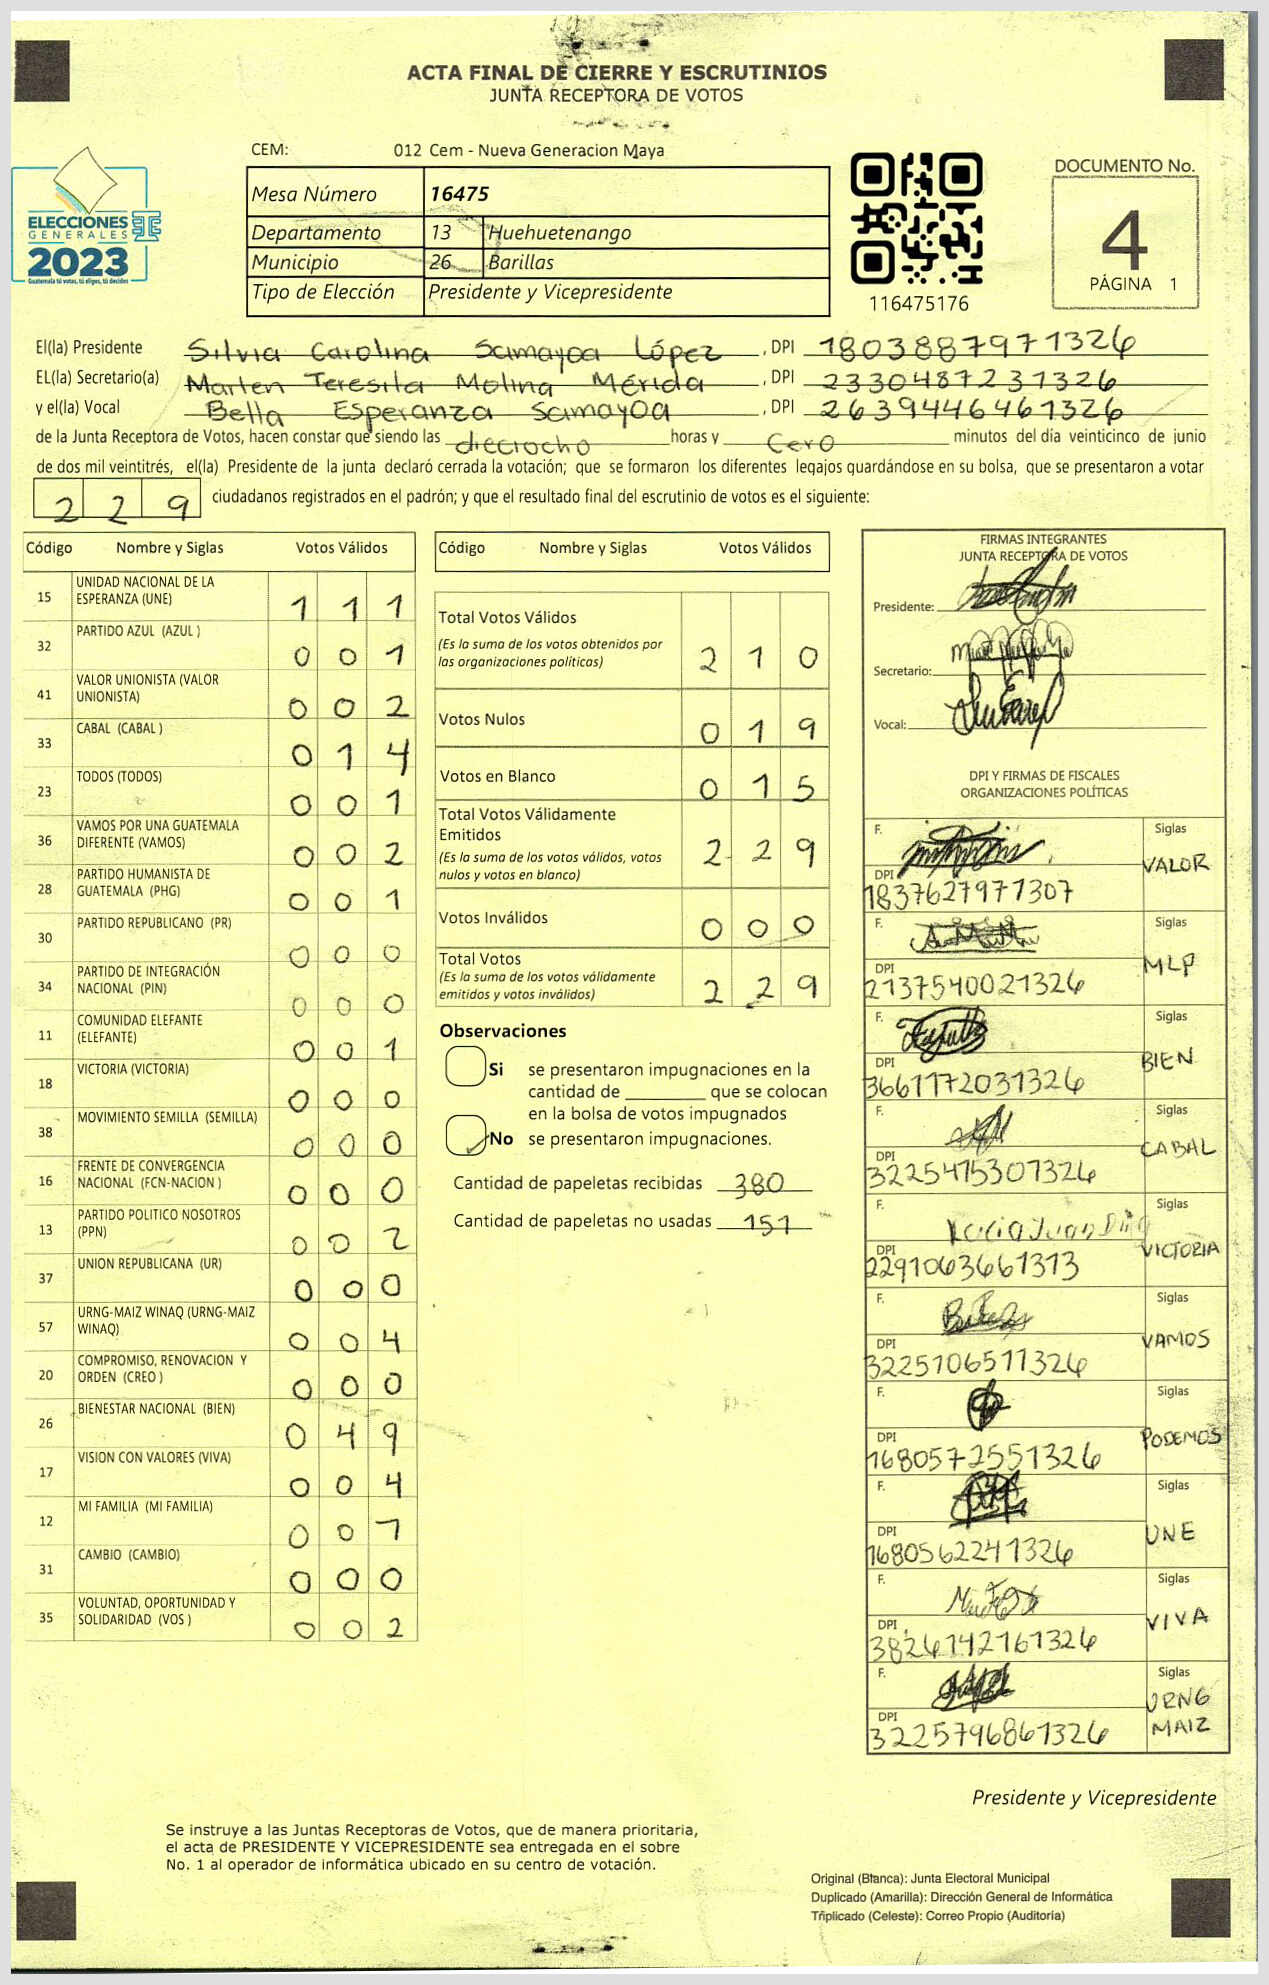 ACTA FINAL DE CIERRE Y ESCRUTINIOS
JUNTA RECEPTORA DE VOTOS
CEM: 012 Cem - Nueva Generacion Maya
ELECCIONES
GENERALES
2023
Guatemala tú votas, tú eliges, tú decides
Mesa Número 16475
Departamento 13 Huehuetenango
Municipio 26 Barillas
Tipo de Elección Presidente y Vicepresidente
116475176
DOCUMENTO No.
4
PÁGINA 1
El(la) Presidente Silvia Carolina Samayoa López , DPI 1803887971326
EL(la) Secretario(a) Marlen Teresita Molina Mérida , DPI 2330487231326
y el(la) Vocal Bella Esperanza Samayoa , DPI 2639446461326
de la Junta Receptora de Votos, hacen constar que siendo las dieciocho horas y cero minutos del día veinticinco de junio
de dos mil veintitrés, el(la) Presidente de la junta declaró cerrada la votación; que se formaron los diferentes legajos quardándose en su bolsa, que se presentaron a votar
229 ciudadanos registrados en el padrón; y que el resultado final del escrutinio de votos es el siguiente:
Código Nombre y Siglas Votos Válidos
15 UNIDAD NACIONAL DE LA
ESPERANZA (UNE) 1 1 1
32 PARTIDO AZUL (AZUL ) 0 0 1
41 VALOR UNIONISTA (VALOR
UNIONISTA) 0 0 2
33 CABAL (CABAL ) 0 1 4
23 TODOS (TODOS) 0 0 1
36 VAMOS POR UNA GUATEMALA
DIFERENTE (VAMOS) 0 0 2
28 PARTIDO HUMANISTA DE
GUATEMALA (PHG) 0 0 1
30 PARTIDO REPUBLICANO (PR) 0 0 0
34 PARTIDO DE INTEGRACIÓN
NACIONAL (PIN) 0 0 0
11 COMUNIDAD ELEFANTE
(ELEFANTE) 0 0 1
18 VICTORIA (VICTORIA) 0 0 0
38 MOVIMIENTO SEMILLA (SEMILLA) 0 0 0
16 FRENTE DE CONVERGENCIA
NACIONAL (FCN-NACION ) 0 0 0
13 PARTIDO POLITICO NOSOTROS
(PPN) 0 0 2
37 UNION REPUBLICANA (UR) 0 0 0
57 URNG-MAIZ WINAQ (URNG-MAIZ
WINAQ) 0 0 4
20 COMPROMISO, RENOVACION Y
ORDEN (CREO ) 0 0 0
26 BIENESTAR NACIONAL (BIEN) 0 4 9
17 VISION CON VALORES (VIVA) 0 0 4
12 MI FAMILIA (MI FAMILIA) 0 0 7
31 CAMBIO (CAMBIO) 0 0 0
35 VOLUNTAD, OPORTUNIDAD Y
SOLIDARIDAD (VOS ) 0 0 2
Código Nombre y Siglas Votos Válidos
Total Votos Válidos
(Es la suma de los votos obtenidos por
las organizaciones políticas) 2 1 0
Votos Nulos 0 1 9
Votos en Blanco 0 1 5
Total Votos Válidamente
Emitidos
(Es la suma de los votos válidos, votos
nulos y votos en blanco) 2 2 9
Votos Inválidos 0 0 0
Total Votos
(Es la suma de los votos válidamente
emitidos y votos inválidos) 2 2 9
Observaciones
Si se presentaron impugnaciones en la
cantidad de ________ que se colocan
en la bolsa de votos impugnados
No se presentaron impugnaciones.
Cantidad de papeletas recibidas 380
Cantidad de papeletas no usadas 151
FIRMAS INTEGRANTES
JUNTA RECEPTORA DE VOTOS
Presidente:
Secretario:
Vocal:
DPI Y FIRMAS DE FISCALES
ORGANIZACIONES POLÍTICAS
F. Siglas
VALOR
DPI
1837627971307
F. Siglas
MLP
DPI
2137540021326
F. Siglas
BIEN
DPI
3661172031326
F. Siglas
CABAL
DPI
3225475307326
F. Siglas
VICTORIA
DPI
2291063661313
F. Siglas
VAMOS
DPI
3225106511326
F. Siglas
PODEMOS
DPI
1680572551326
F. Siglas
UNE
DPI
1680562241326
F. Siglas
VIVA
DPI
3826142161326
F. Siglas
URNG
MAIZ
DPI
3225796861326
Presidente y Vicepresidente
Se instruye a las Juntas Receptoras de Votos, que de manera prioritaria,
el acta de PRESIDENTE Y VICEPRESIDENTE sea entregada en el sobre
No. 1 al operador de informática ubicado en su centro de votación.
Original (Blanca): Junta Electoral Municipal
Duplicado (Amarilla): Dirección General de Informática
Triplicado (Celeste): Correo Propio (Auditoría)